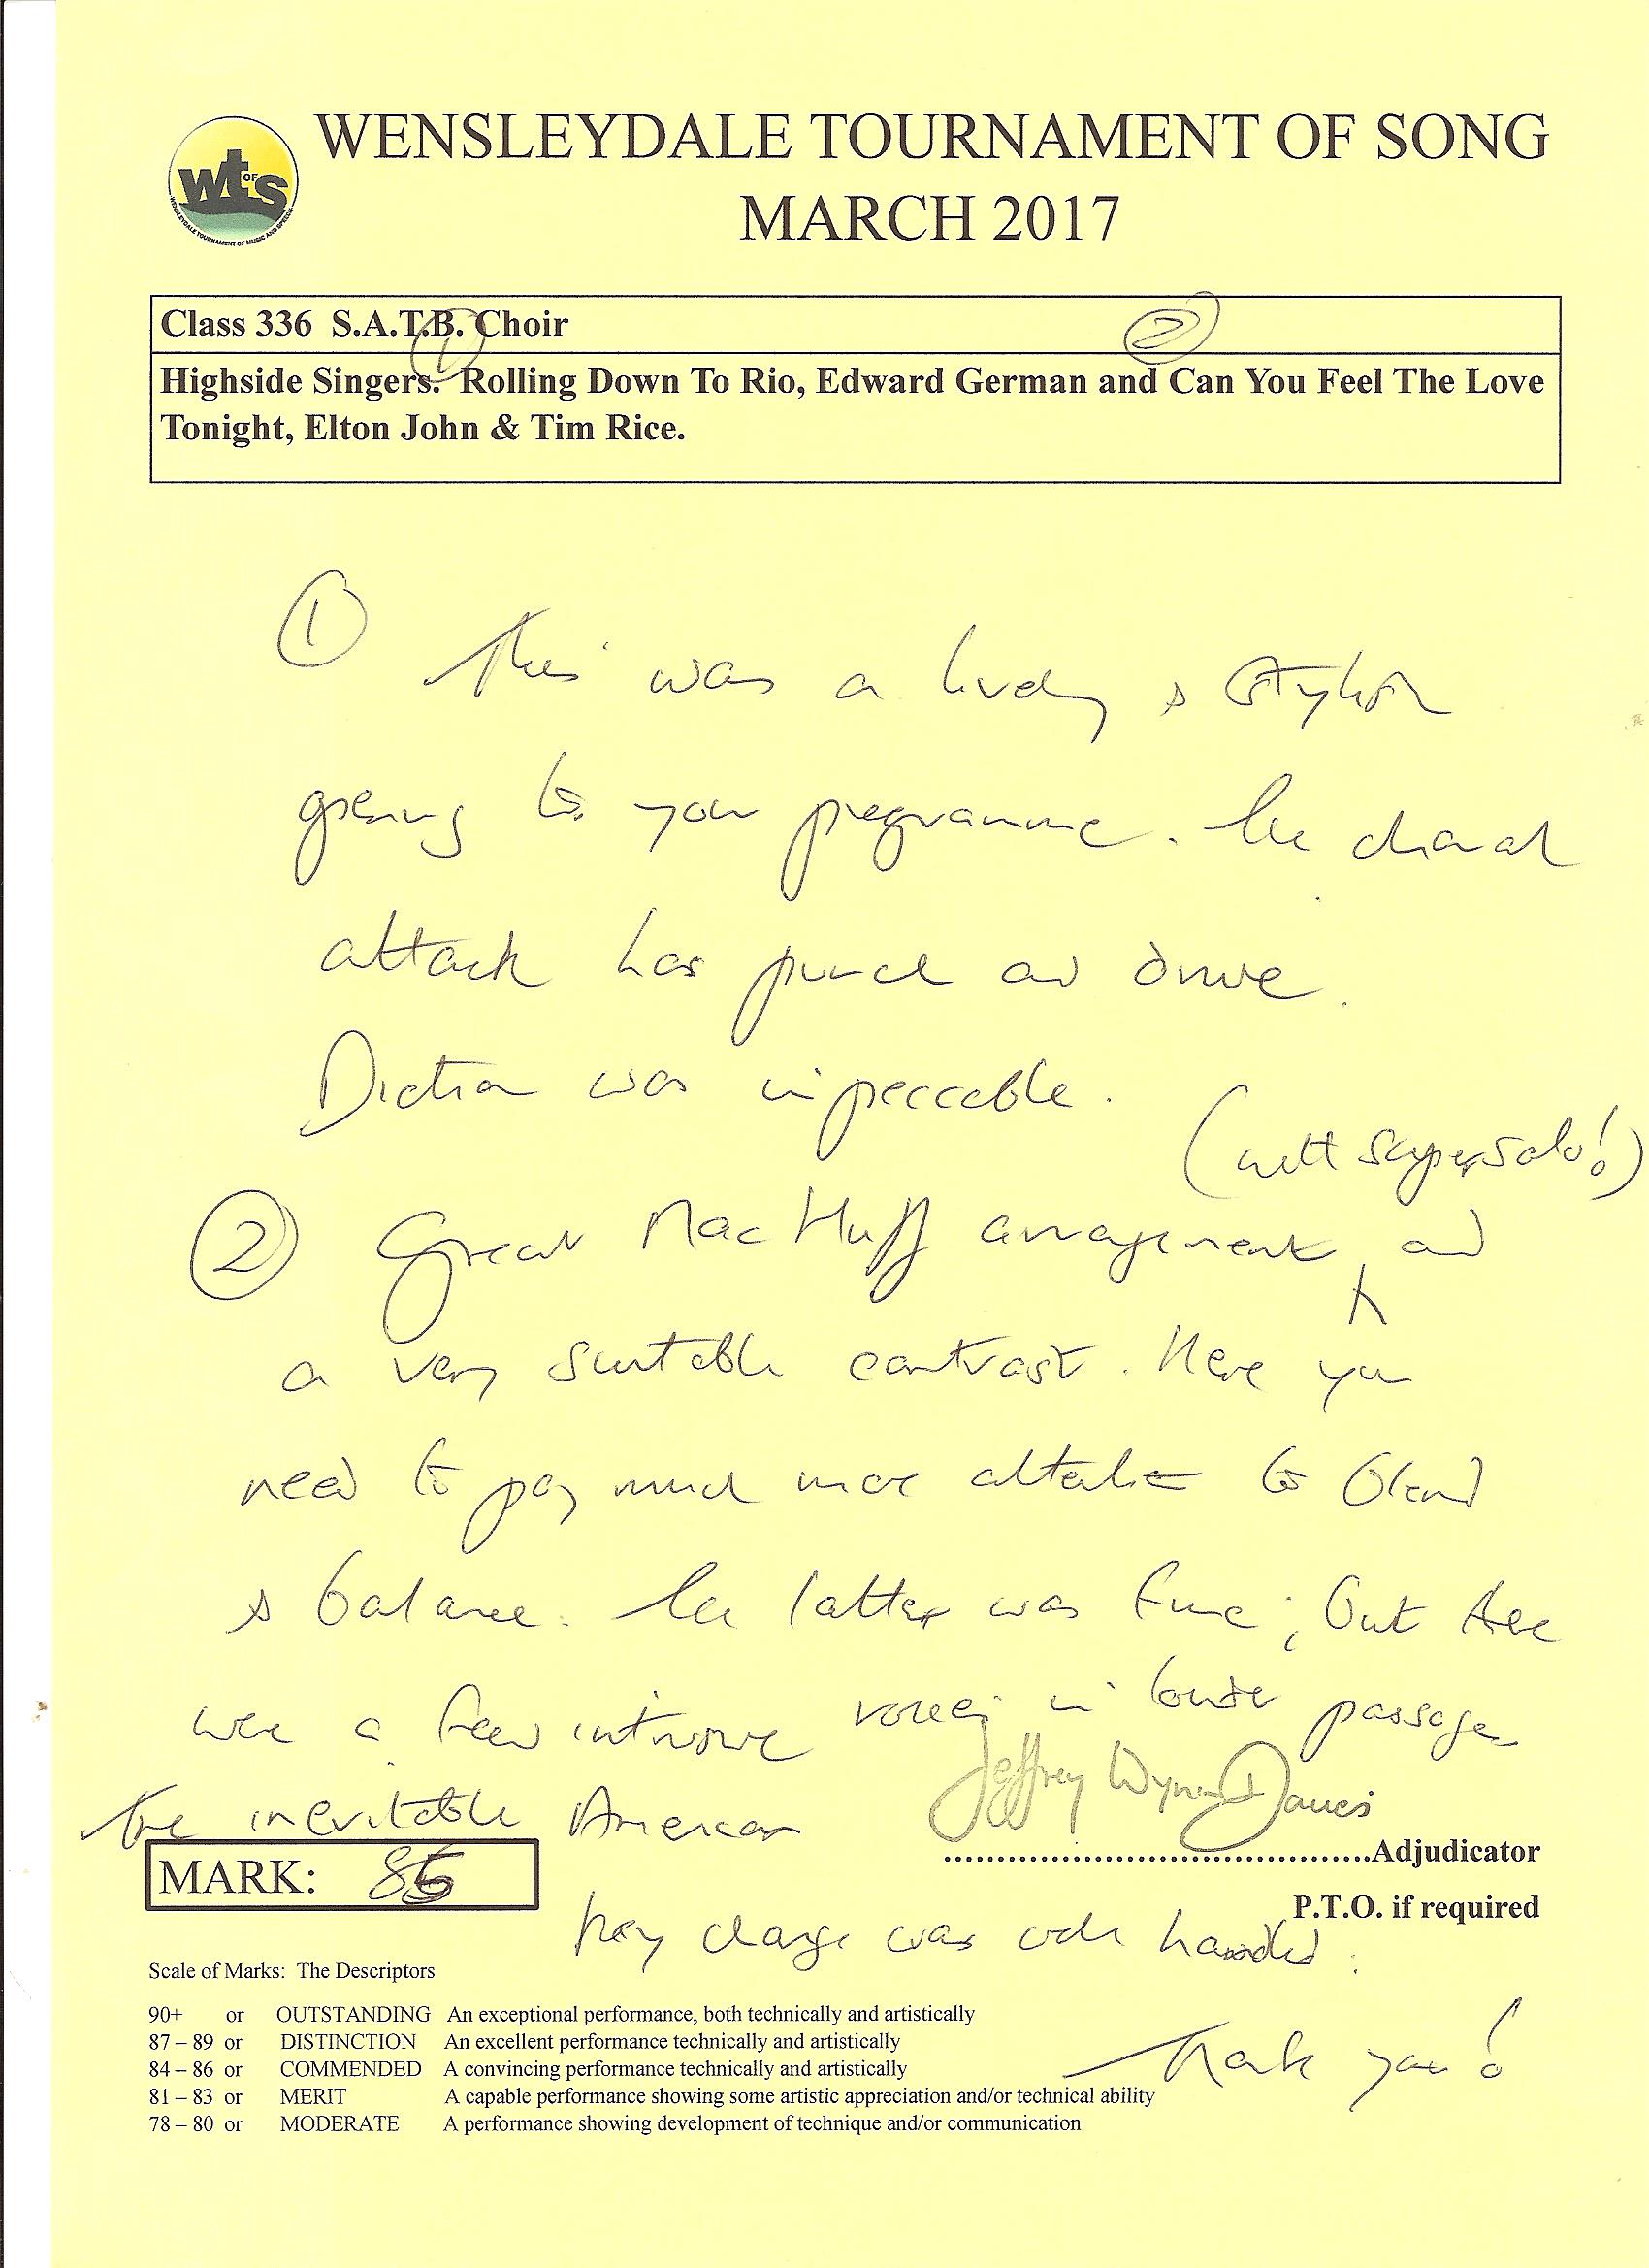 WENSLEYDALE TOURNAMENT OF SONG
MARCH 2017
wt OF s
WENSLEYDALE TOURNAMENT OF MUSIC AND SPEECH
Class 336 S.A.T.B. Choir
① ②
Highside Singers: Rolling Down To Rio, Edward German and Can You Feel The Love
Tonight, Elton John & Tim Rice.
① This was a lively & stylish
opening to your programme. The choral
attack has punch and drive.
Diction was impeccable.
(with super solo!)
② Great MacHuff arrangement, and
a very suitable contrast. Here you
need to pay much more attention to blend
& balance. The latter was fine; but there
were a few intrusive voices in louder passages
The inevitable American
Jeffrey Wynn Davies
..........Adjudicator
MARK: 85
P.T.O. if required
key change was well handled.
Scale of Marks: The Descriptors
90+ or OUTSTANDING An exceptional performance, both technically and artistically
87 – 89 or DISTINCTION An excellent performance technically and artistically
84 – 86 or COMMENDED A convincing performance technically and artistically
81 – 83 or MERIT A capable performance showing some artistic appreciation and/or technical ability
78 – 80 or MODERATE A performance showing development of technique and/or communication
Thank you!